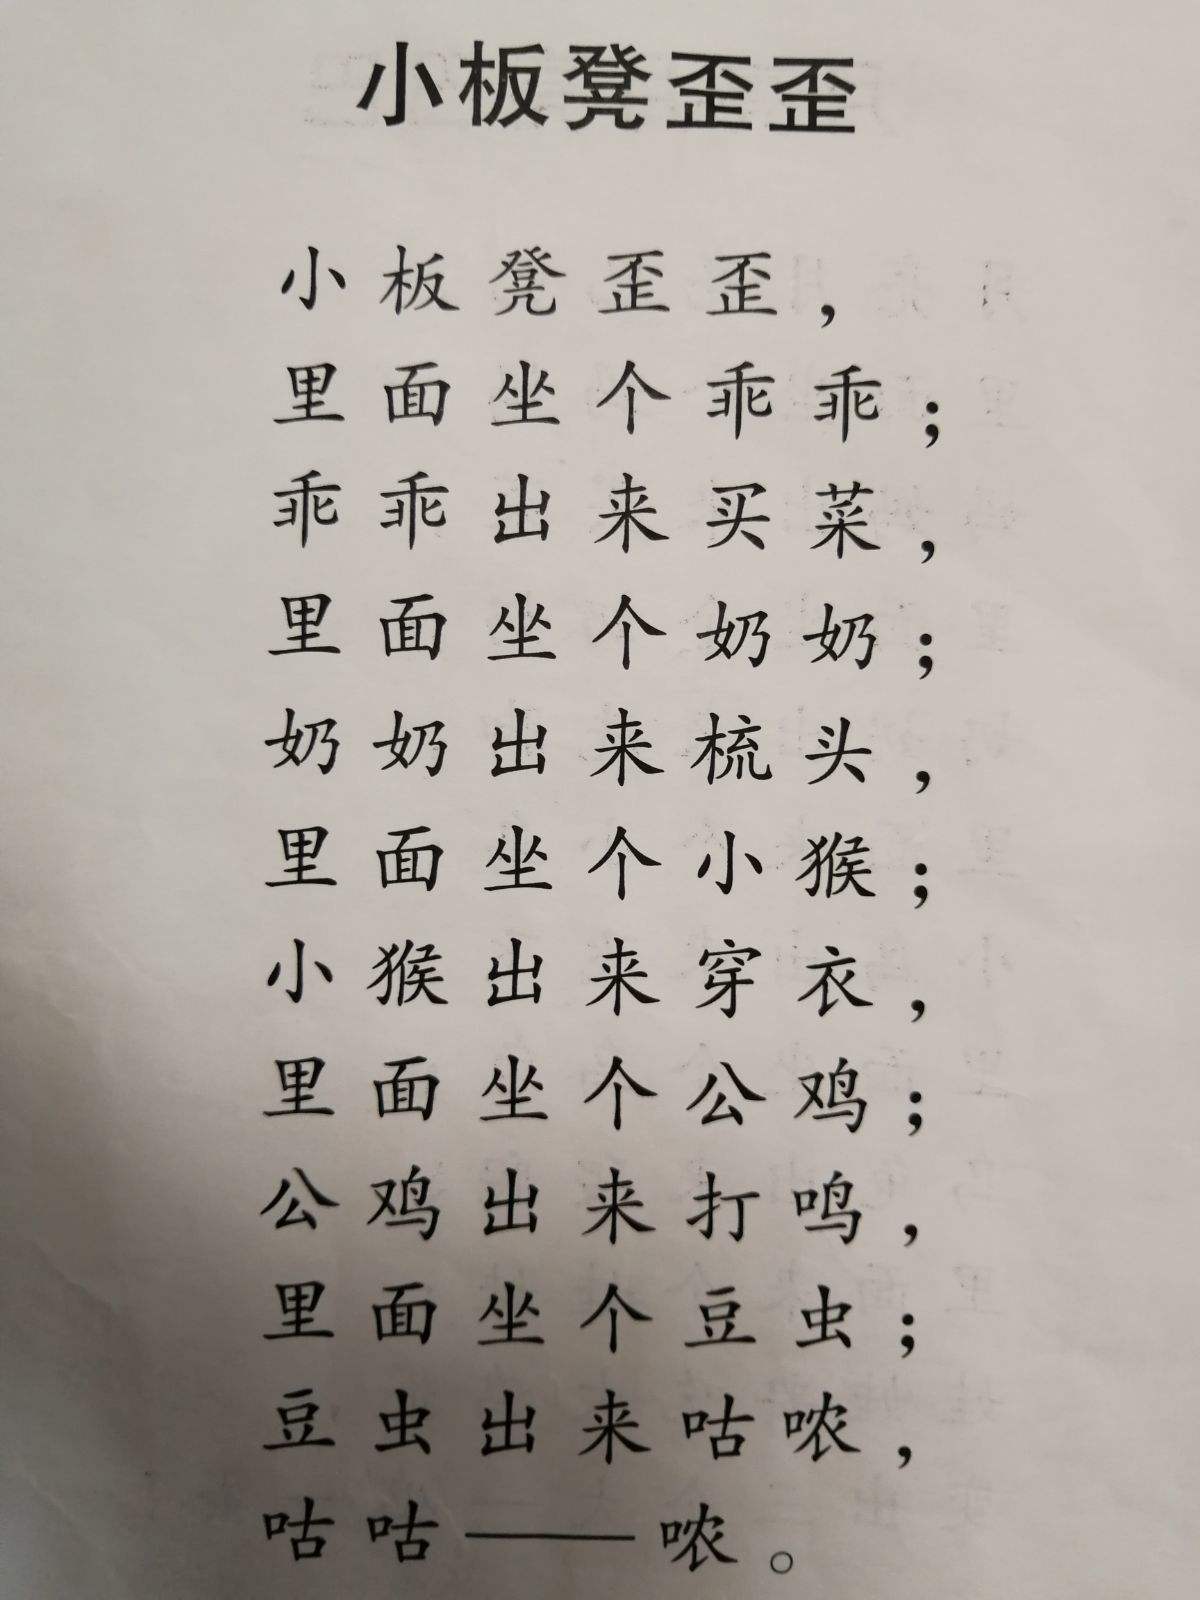 小板凳歪歪
小板凳歪歪，
里面坐个乖乖；
乖乖出来买菜，
里面坐个奶奶；
奶奶出来梳头，
里面坐个小猴；
小猴出来穿衣，
里面坐个公鸡；
公鸡出来打鸣，
里面坐个豆虫；
豆虫出来咕哝，
咕咕——哝。